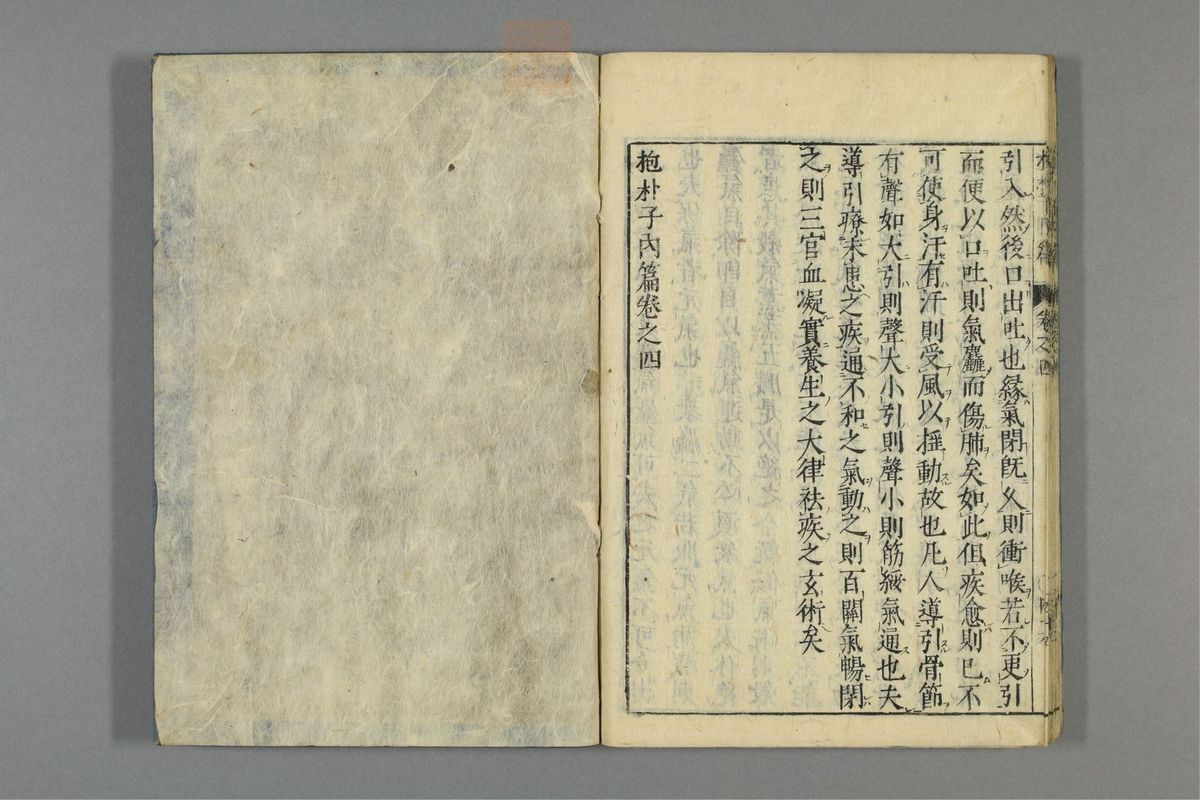 引入然後口出吐也縁氣閉既久則衝喉若不更引
而便以口吐則氣麤而傷肺矣如此但疾愈則已不
可使身汗有汗則受風以揺動故也凡人導引骨節
有聲如大引則聲大小引則聲小則筋緩氣通也夫
導引療未患之疾通不和之氣動之則百關氣暢閉
之則三宮血凝實養生之大律祛疾之玄術矣
抱朴子內篇卷之四